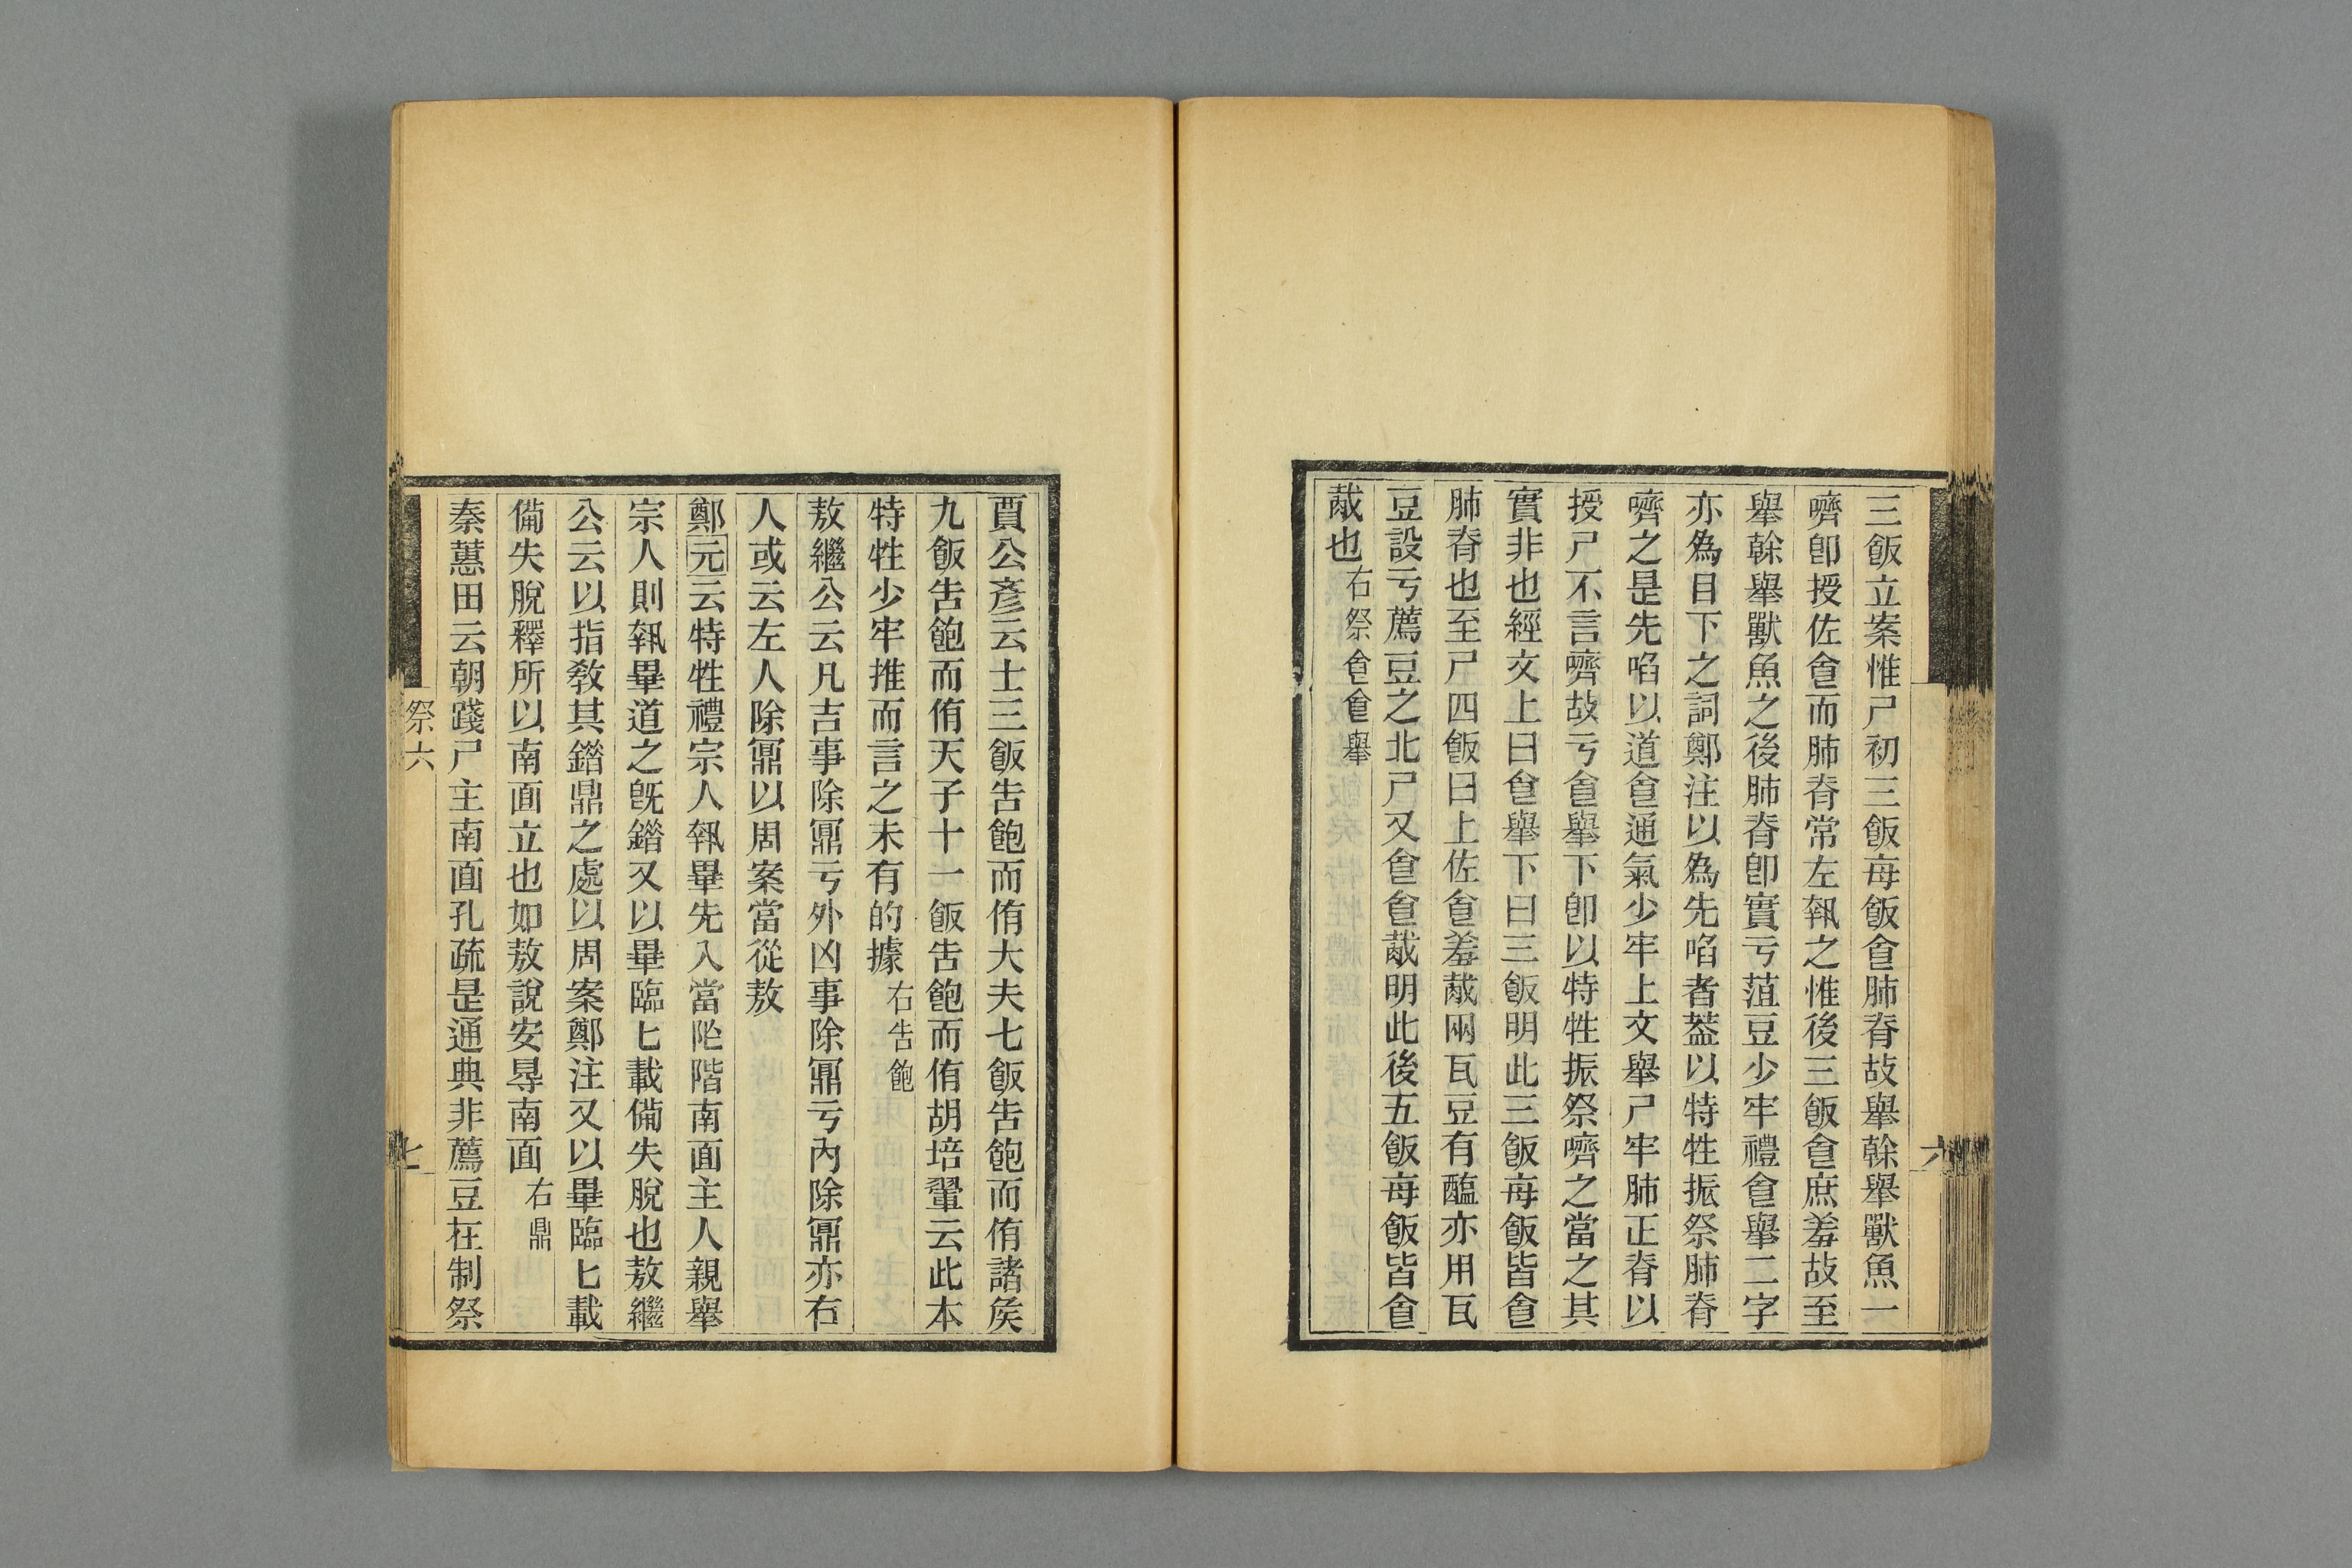 三飯立案惟尸初三飯每飯㑹肺脊故舉榦舉獸魚一
嚌卽授佐㑹而肺脊常左執之惟後三飯㑹庶羞故至
舉榦舉獸魚之後肺脊卽實亏菹豆少牢禮㑹舉二字
亦為目下之詞鄭注以為先啗者葢以特牲振祭肺脊
嚌之是先啗以道㑹通氣少牢上文舉尸牢肺正脊以
授尸不言嚌故亏㑹舉下卽以特牲振祭嚌之當之其
實非也經文上曰㑹舉下曰三飯明此三飯每飯皆㑹
肺脊也至尸四飯曰上佐㑹羞胾兩瓦豆有醢亦用瓦
豆設亏薦豆之北尸又㑹㑹胾明此後五飯每飯皆㑹
胾也右祭㑹㑹舉
六
賈公彥云士三飯告飽而侑大夫七飯告飽而侑諸矦
九飯告飽而侑天子十一飯告飽而侑胡培翬云此本
特牲少牢推而言之未有的據右告飽
敖繼公云凡吉事除鼏亏外凶事除鼏亏內除鼏亦右
人或云左人除鼏以周案當從敖
鄭元云特牲禮宗人執畢先入當阼階南面主人親舉
宗人則執畢道之旣錯又以畢臨匕載備失脫也敖繼
公云以指敎其錯鼎之處以周案鄭注又以畢臨匕載
備失脫釋所以南面立也如敖說安㝵南面右鼎
秦蕙田云朝踐尸主南面孔疏是通典非薦豆在制祭
祭六
七